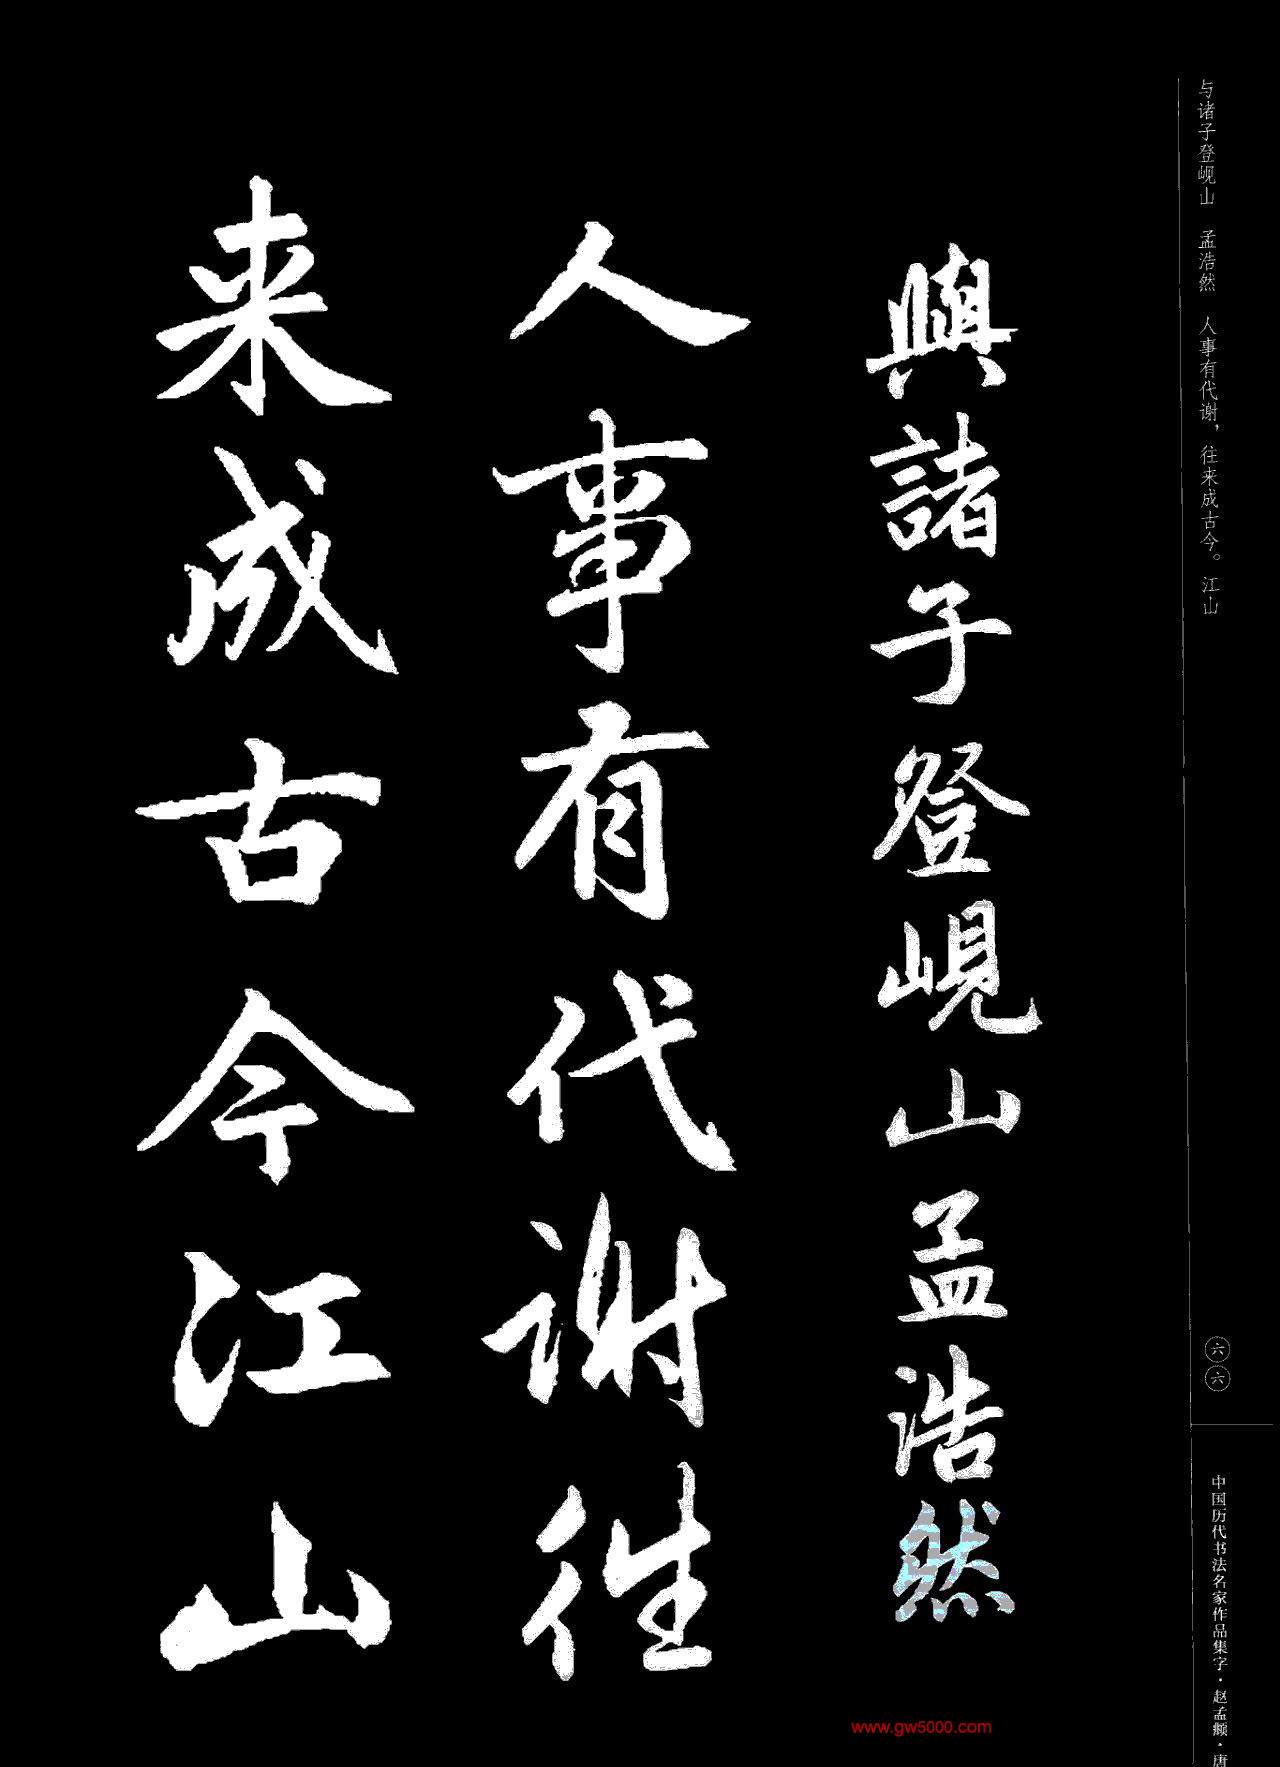 与诸子登岘山 孟浩然 人事有代谢，往来成古今。江山
六六
中国历代书法名家作品集字·赵孟𫖯·唐
與諸子登峴山孟浩然
人事有代谢往
来成古今江山
www.gw5000.com